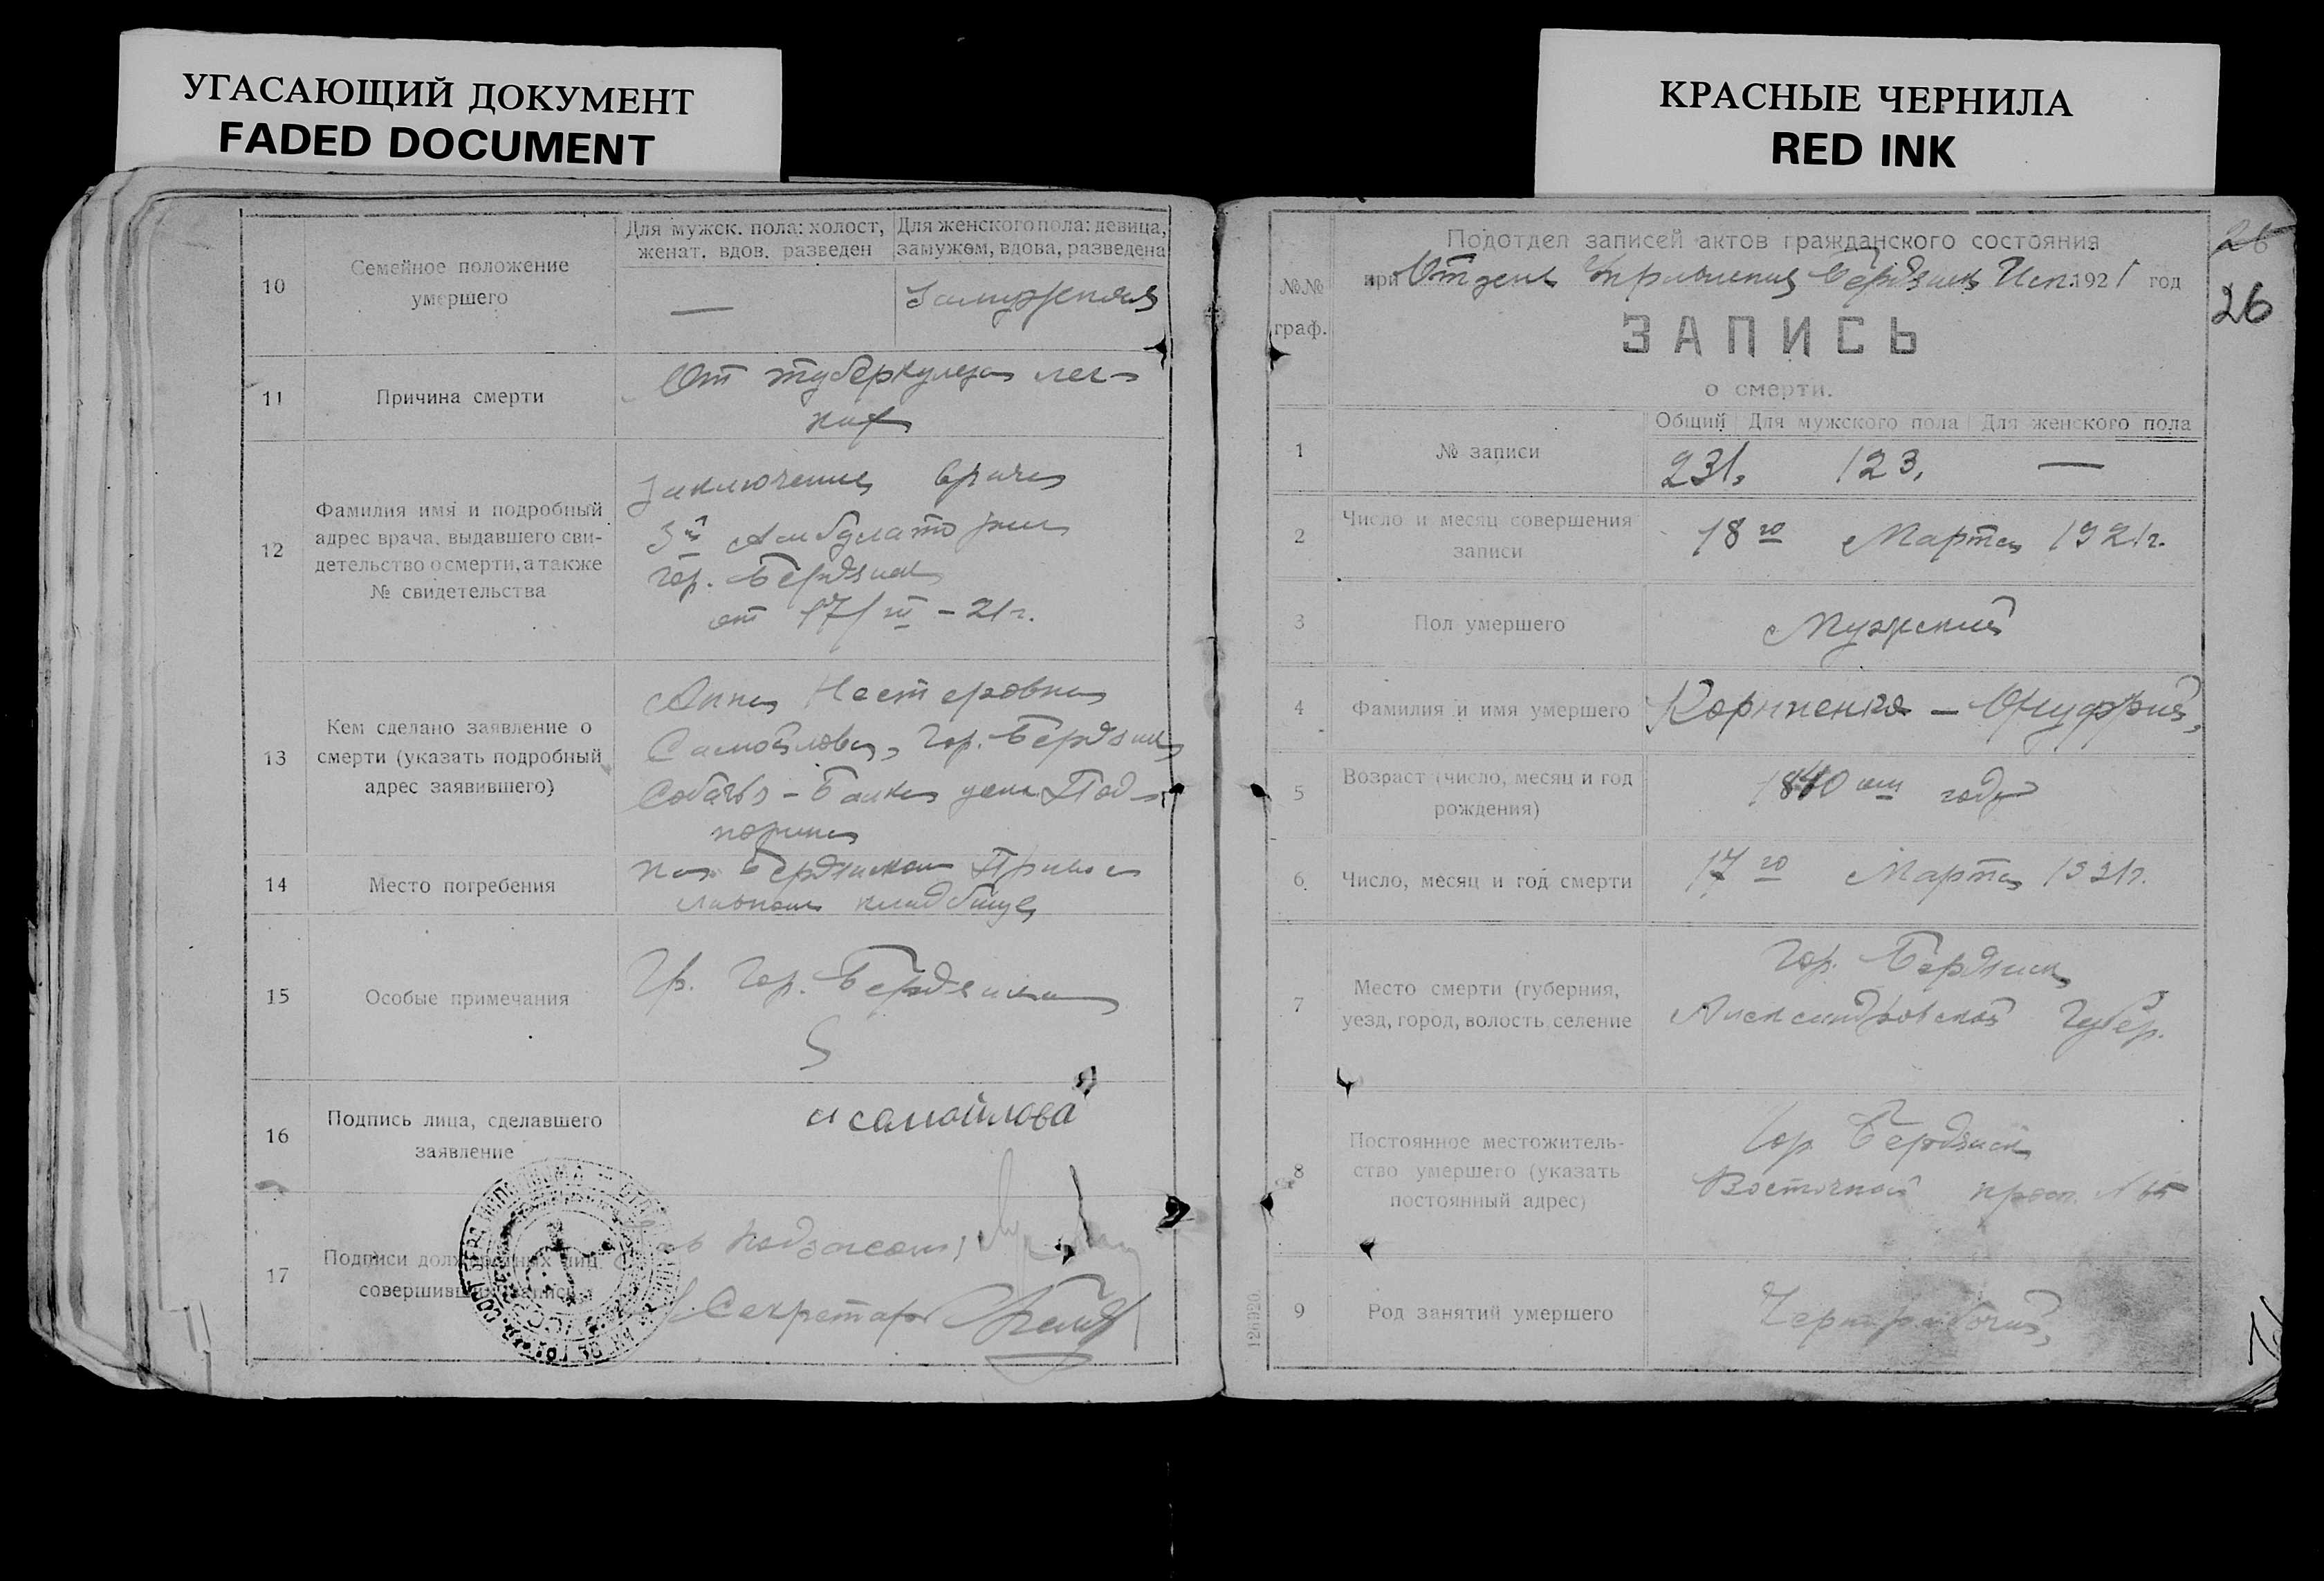 УГАСАЮЩИЙ ДОКУМЕНТ
FADED DOCUMENT
КРАСНЫЕ ЧЕРНИЛА
RED INK
10
Семейное положение
умершего
Для мужск. пола: холост,
женат. вдов. разведен
Для женского пола: девица,
замужем, вдова, разведена
—
Замужняя
11
Причина смерти
От туберкулеза лег-
ких
12
Фамилия имя и подробный
адрес врача, выдавшего сви-
детельство о смерти, а также
№ свидетельства
Заключение врача
3й Амбулатории
гор. Бердянск
от 17/III – 21 г.
13
Кем сделано заявление о
смерти (указать подробный
адрес заявившего)
Анна Нестеровна
Самойлова, гор. Бердянск
Собачья – Балка дом
14
Место погребения
на Бердянском Правос
лавном кладбище
15
Особые примечания
Гр. гор. Бердянска
16
Подпись лица, сделавшего
заявление
Самойлова
17
Подписи должностных лиц
совершивших запись
Секретарь
Подотдел записей актов гражданского состояния
при Отделе Управления Бердянск Исп. 1921 год
26
26
№№
граф.
ЗАПИСЬ
о смерти.
1
№ записи
Общий
Для мужского пола
Для женского пола
231,
123,
—
2
Число и месяц совершения
записи
18го Марта 1921 г.
3
Пол умершего
Мужской
4
Фамилия и имя умершего
Корниенко – Онуфрий,
5
Возраст (число, месяц и год
рождения)
года
6
Число, месяц и год смерти
17го Марта 1921 г.
7
Место смерти (губерния,
уезд, город, волость селение
Гор. Бердянск
Александровской Губер.
8
Постоянное местожитель-
ство умершего (указать
постоянный адрес)
Гор. Бердянск
Восточной просп. №
9
Род занятий умершего
Чернорабочий,
126920.